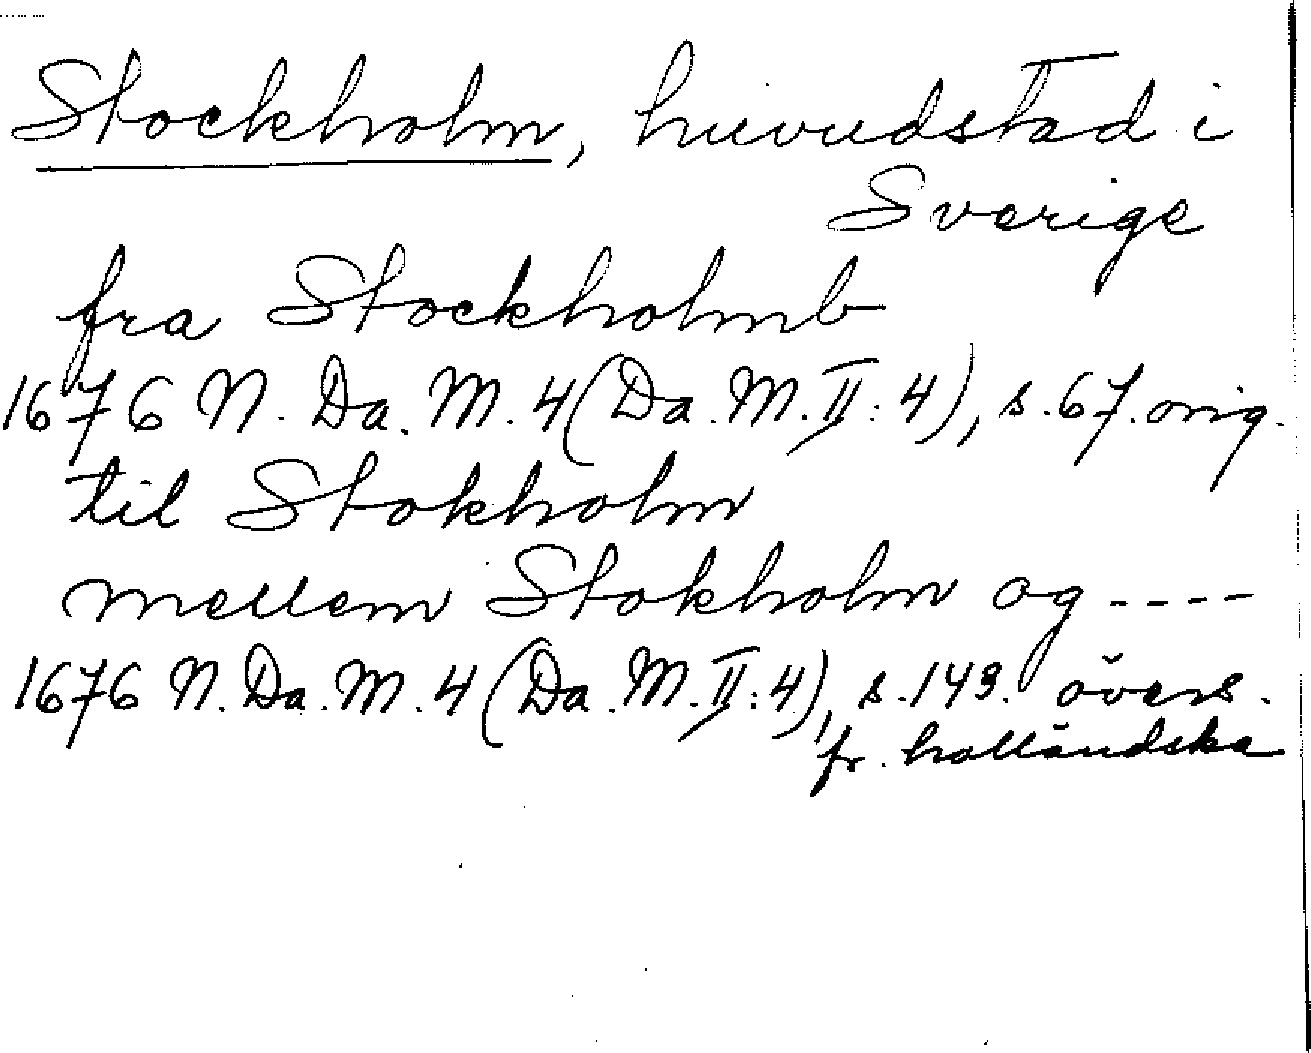 Stockholm, huvudstad i
Sverige
fra Stockholmb
1676 N. Da. M. 4 (Da. M. II: 4), s. 67. orig.
til Stokholm
mellem Stokholm og ----
1676 N. Da. M. 4 (Da. M. II: 4), s. 149. övers.
fr. holländska